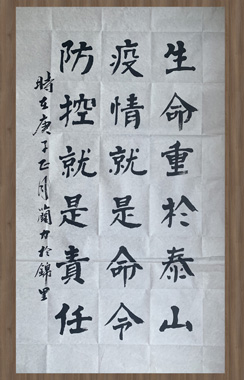 生命重於泰山
疫情就是命令
防控就是責任
時在庚子正月蘭力於錦里